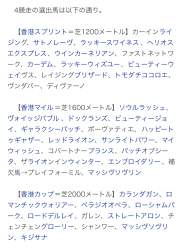 4競走の選出馬は以下の通り。
【香港スプリント＝芝1200メートル】カーインライ
ジング、サトノレーヴ、ラッキースワイネス、ヘリオス
エクスプレス、ウインカーネリアン、ファストネットワ
ーク、カーデム、ラッキーウィズユー、ビューティーウ
ェイヴス、レイジングブリザード、トモダチココロエ、
ヴンダバー、ディヴァーノ
【香港マイル＝芝1600メートル】ソウルラッシュ、
ヴォイッジバブル、ドックランズ、ビューティージョ
イ、ギャラクシーパッチ、ボーヴァティエ、ハッピート
ゥギャザー、レッドライオン、サンライトパワー、マイ
ウィッシュ、コパートナープランス、パッチオブシー
タ、ザライオンインウィンター、エンブロイダリー、補
欠馬→プレイフォーミル、マッシヴソヴリン
【香港カップ＝芝2000メートル】カランダガン、ロ
マンチックウォリアー、ベラジオオペラ、ローシャムパ
ーク、ロードデルレイ、ガレン、ストレートアロン、チ
ェンチェングローリー、シャンワー、マッシヴソヴリ
ン、キジサナ